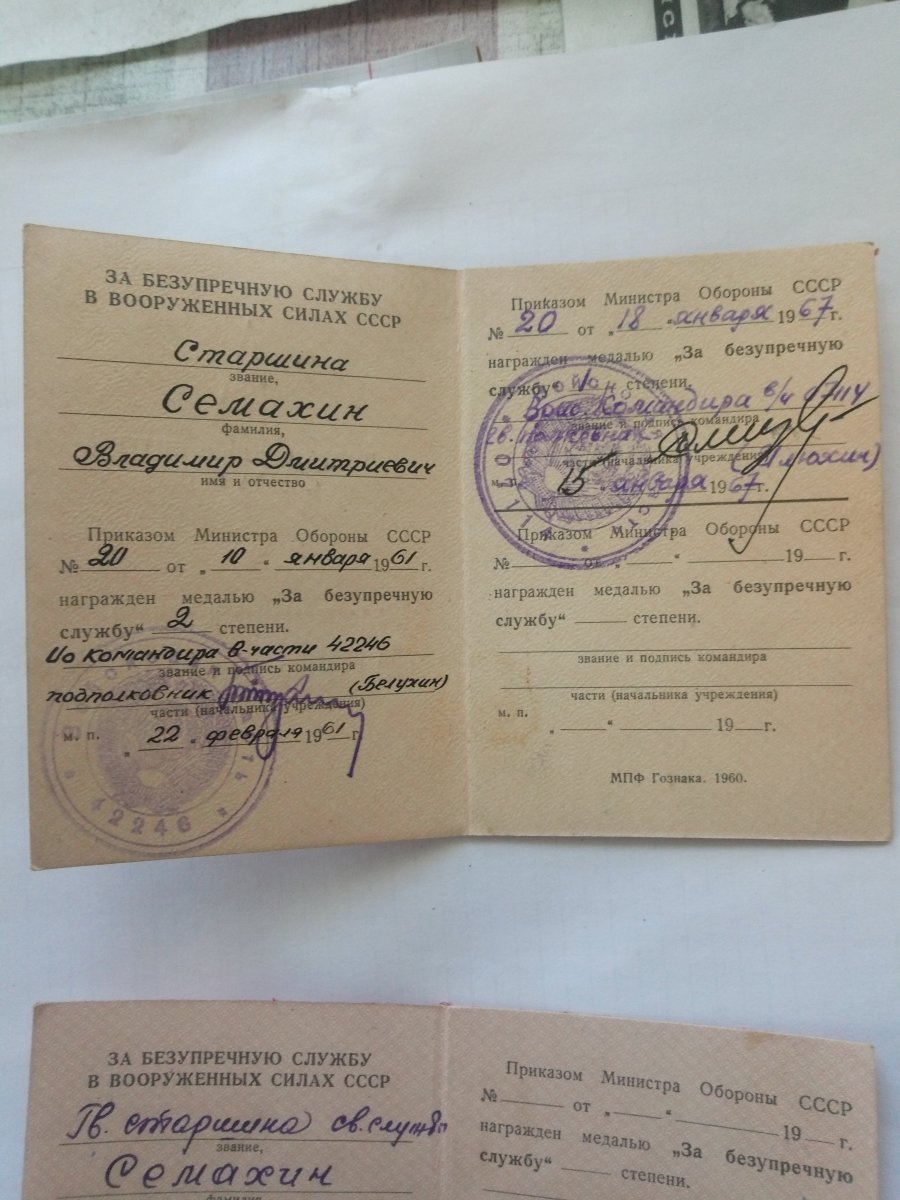 ЗА БЕЗУПРЕЧНУЮ СЛУЖБУ
В ВООРУЖЕННЫХ СИЛАХ СССР
Старшина
звание,
Семахин
фамилия,
Владимир Дмитриевич
имя и отчество
Приказом Министра Обороны СССР
№ 20 от „10“ января 1961 г.
награжден медалью „За безупречную
службу“ 2 степени.
Ио командира в-части 42246
звание и подпись командира
подполковник (Белухин)
части (начальника учреждения)
м. п. „22“ февраля 1961 г.
42246
Приказом Министра Обороны СССР
№ 20 от „18“ января 1967 г.
награжден медалью „За безупречную
службу“ 1 степени.
командира в/ч
звание и подпись командира
части (начальника учреждения)
м. п. „15“ января 1967 г.
Приказом Министра Обороны СССР
№ от „ “ 19 г.
награжден медалью „За безупречную
службу“ степени.
звание и подпись командира
части (начальника учреждения)
м. п. „ “ 19 г.
МПФ Гознака. 1960.
ЗА БЕЗУПРЕЧНУЮ СЛУЖБУ
В ВООРУЖЕННЫХ СИЛАХ СССР
Гв. старшина св.службы
звание,
Семахин
фамилия,
Приказом Министра Обороны СССР
№ от „ “ 19 г.
награжден медалью „За безупречную
службу“ степени.